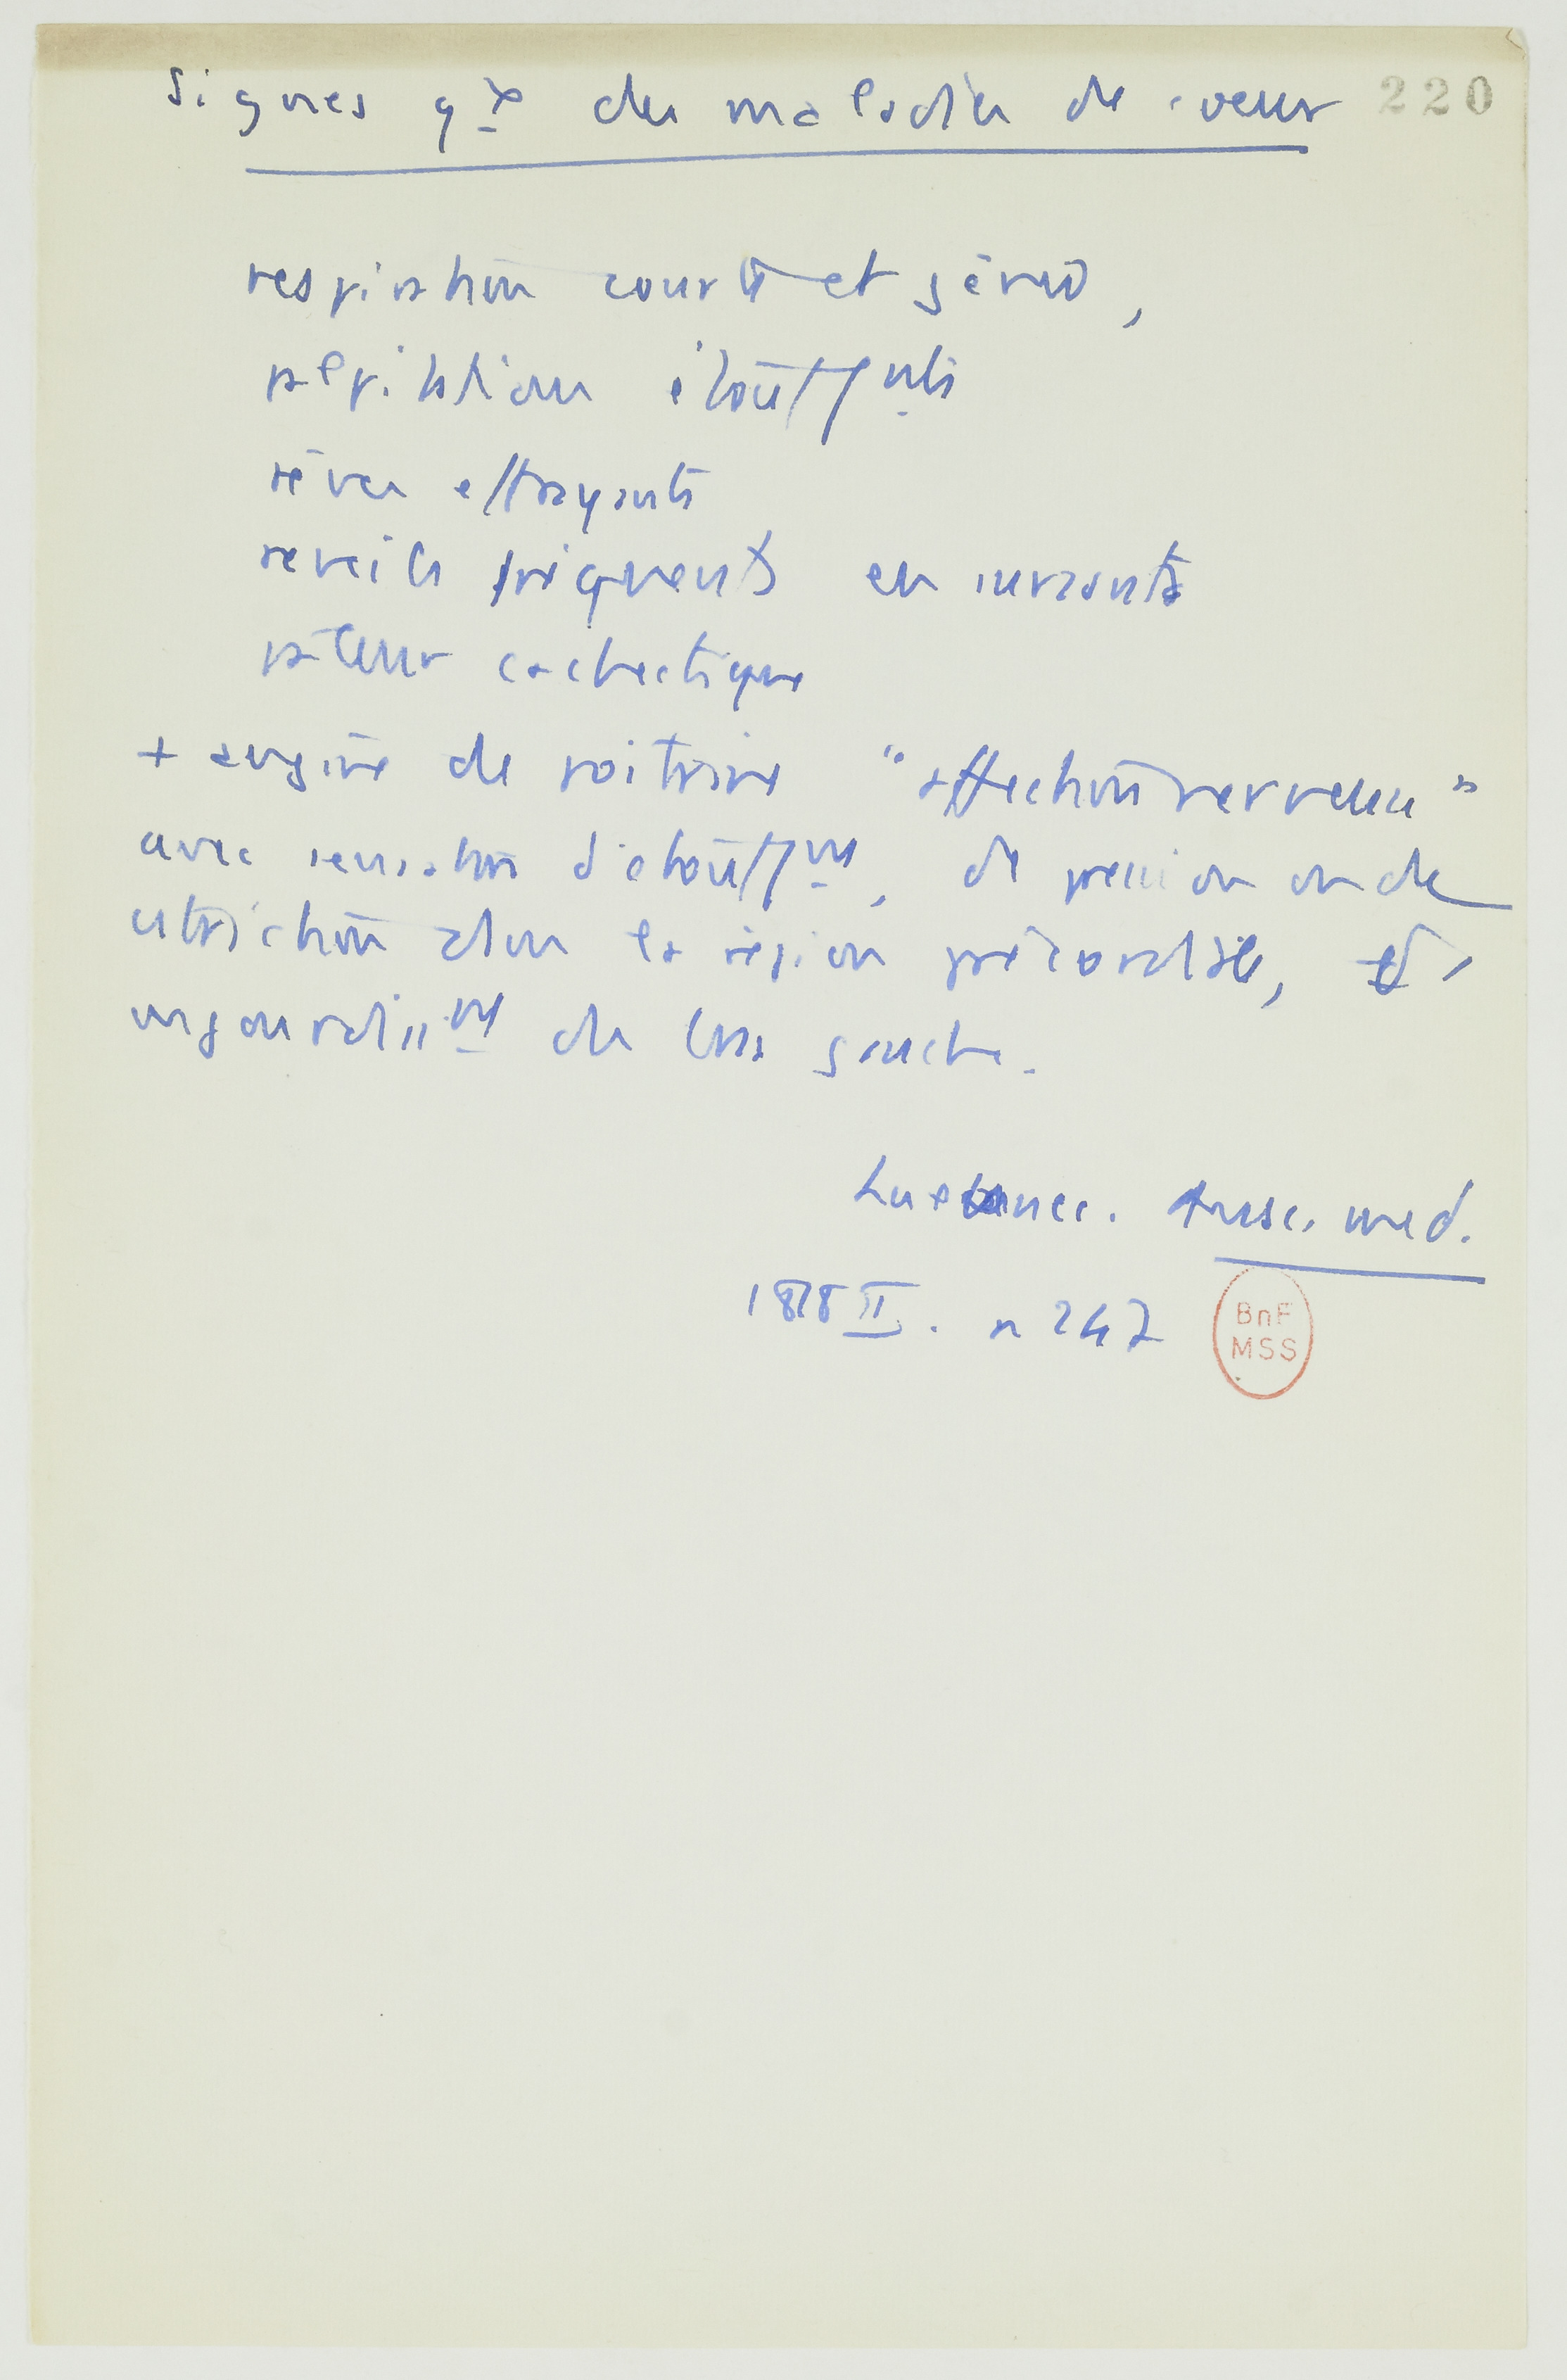 Signes gx des maladies de coeur 220
respiration courte et gênée,
palpitations étouffmts
rêves effrayants
reveils fréquents en sursauts
pâleur cachectique
+ angine de poitrine "affection nerveuse"
avec sensation d'étouffmt, de pression ou de
constriction dans la région précordiale, et
engourdissmt du bras gauche.
Laennec. Ausc. med.
1818 II. n 247
BnF
MSS